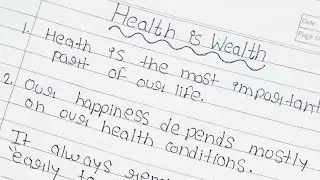 Health is Wealth
Date
Page No
1. Heath is the most important
part of our life.
2. Our happiness depends mostly
on our health conditions.
It always
early to